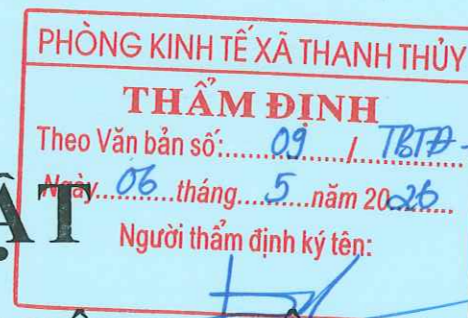 PHÒNG KINH TẾ XÃ THANH THỦY
THẨM ĐỊNH
Theo Văn bản số:.....09...../...TBTĐ-
Ngày.....06...tháng....5....năm 2026
ẬT
Người thẩm định ký tên: